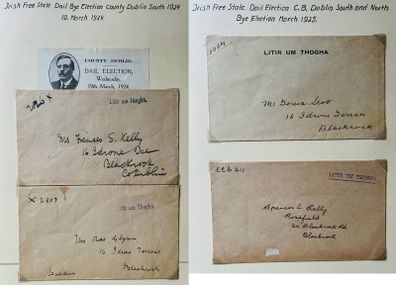 Irish Free State Dail Bye Election County Dublin South 1924
19. March 1924.
COUNTY DUBLIN.
DAIL ELECTION,
Wednesday,
19th March, 1924
Litir um Thogha.
Ms Frances S. Kelly
16 Idrone Tce
Blackrock
Co Dublin
X 2803
Litir um Thogha
16 Idrone Terrace
Blackrock
Dublin
Irish Free State Dail Election C.B. Dublin South and North
Bye Election March 1925.
LITIR UM THOGHA
16 Idrone Terrace
Blackrock
LITIR UM THOGHA
Kelly
Rosefield
Blackrock Rd
Blackrock